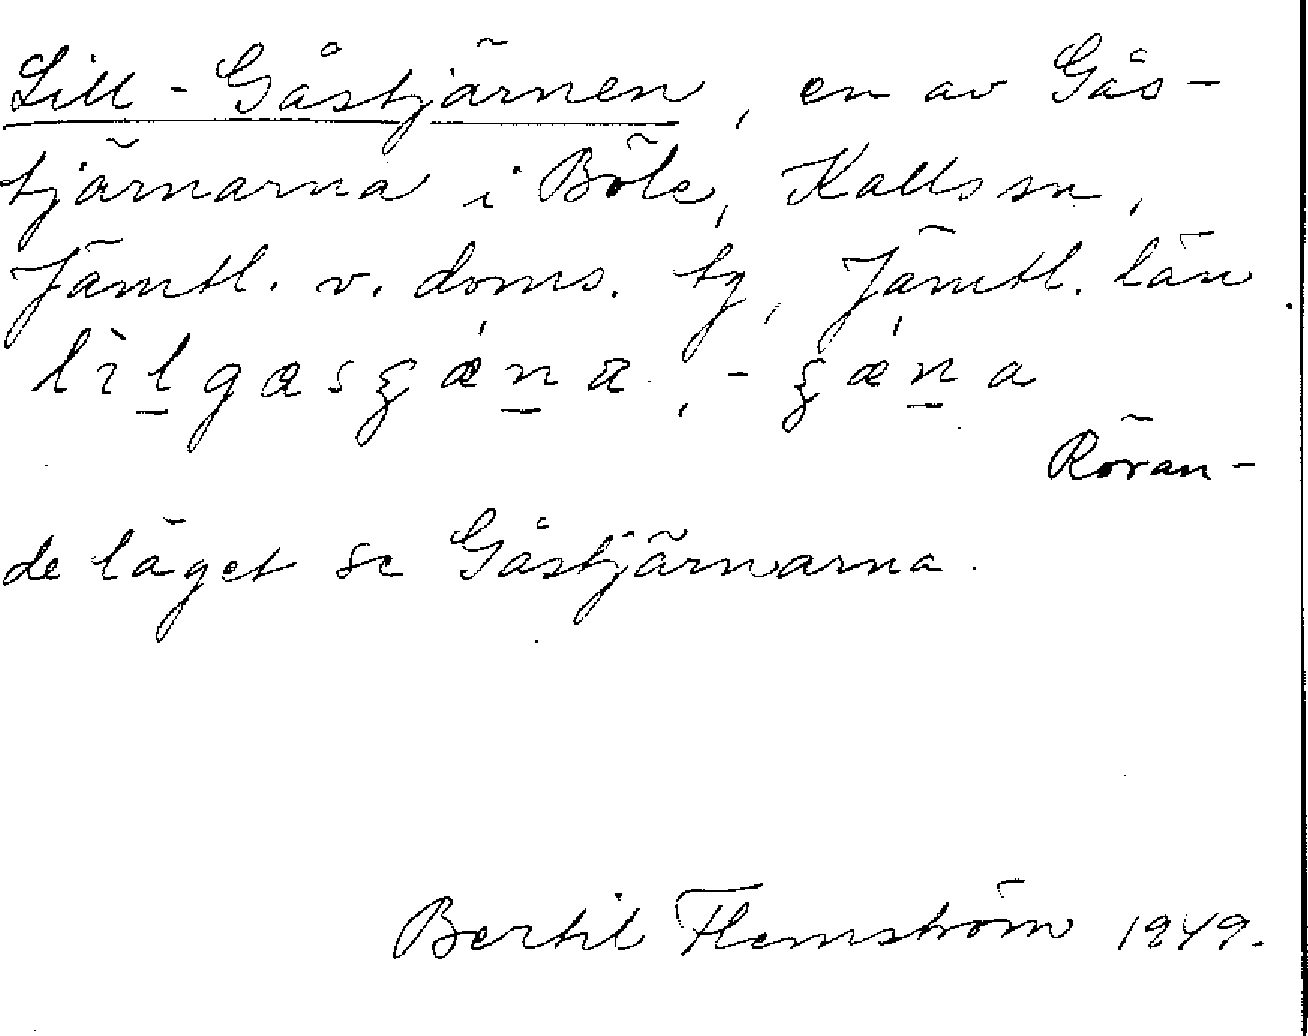 Lill-Gåstjärnen, en av Gås-
tjärnarna i Böle, Kalls sn,
Jämtl. v. doms. tg, Jämtl. län.
Röran-
de läget se Gåstjärnarna.
Bertil Flemström 1949.